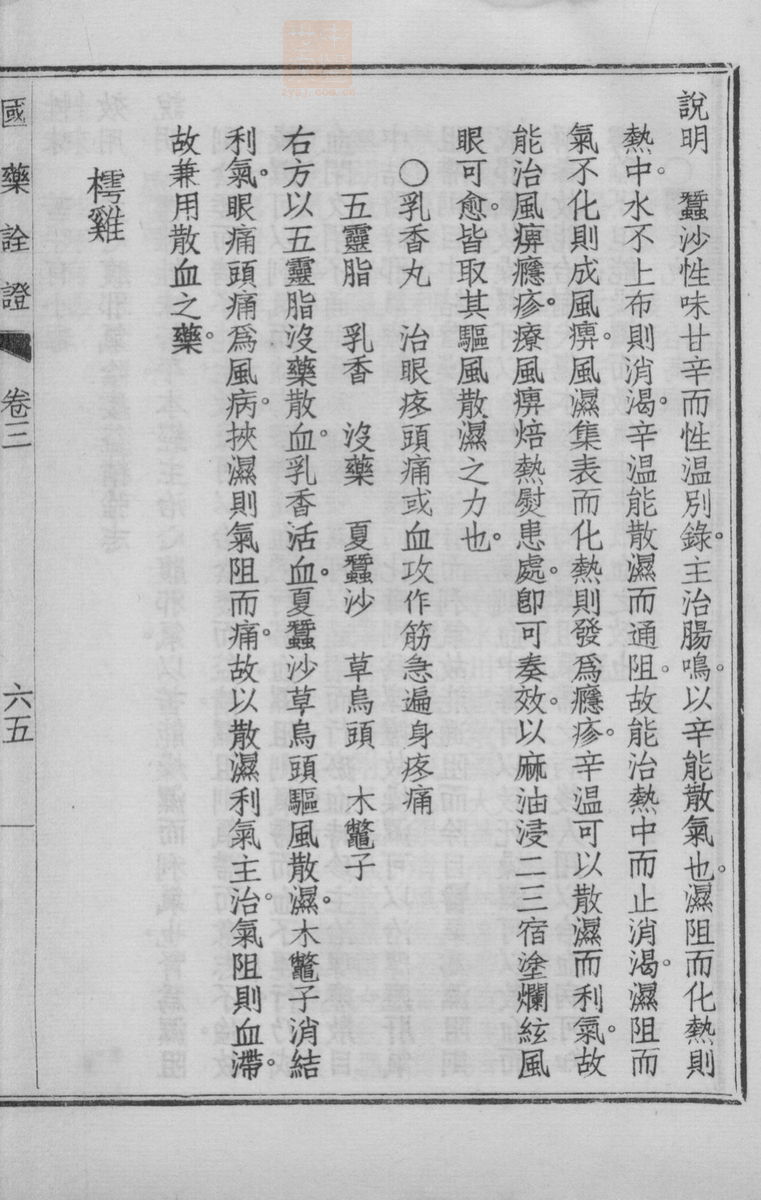 說明　蠶沙性味甘辛而性溫別錄。主治腸鳴。以辛能散氣也。濕阻而化熱則
熱中。水不上布則消渴。辛溫能散濕而通阻。故能治熱中而止消渴。濕阻而
氣不化則成風痹。風濕集表而化熱則發爲癮疹。辛溫可以散濕而利氣。故
能治風痹癮疹。療風痹焙熱熨患處。卽可奏效。以麻油浸二三宿塗爛絃風
眼可愈。皆取其驅風散濕之力也。
〇乳香丸　治眼疼頭痛或血攻作筋急遍身疼痛
五靈脂　乳香　沒藥　夏蠶沙　草烏頭　木鼈子
右方以五靈脂沒藥散血。乳香活血。夏蠶沙草烏頭驅風散濕。木鼈子消結
利氣。眼痛頭痛爲風病。挾濕則氣阻而痛。故以散濕利氣主治。氣阻則血滯。
故兼用散血之藥。
樗雞
國藥詮證　卷三　六五